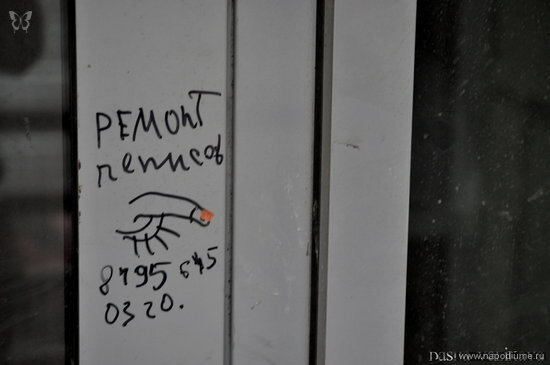 РЕМОНТ
пеписов
8495 645
0320.
www.napodiume.ru